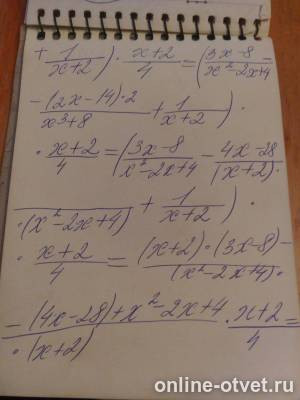 + 1/(x+2)) · (x+2)/4 = ((3x-8)/(x²-2x+4) -
- ((2x-14)·2)/(x³+8) + 1/(x+2)) ·
· (x+2)/4 = ((3x-8)/(x²-2x+4) - (4x-28)/((x+2)·
·(x²-2x+4)) + 1/(x+2)) ·
· (x+2)/4 = ((x+2)·(3x-8) -/(x²-2x+4)·
- (4x-28)+x²-2x+4/·(x+2) · (x+2)/4 =
online-otvet.ru